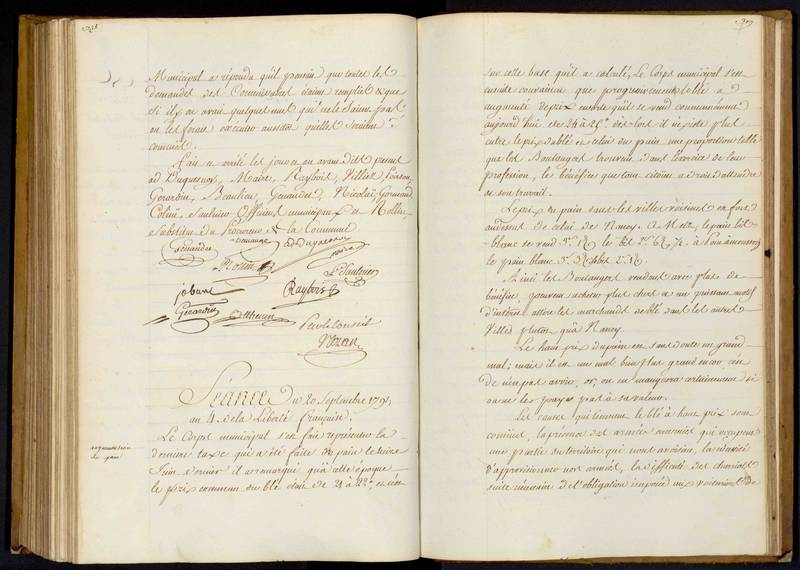 Municipal a répondu qu'il pensoit que toutes les
demandes des Commissaires étaient remplies & que
si il y en avoit quelques unes qui ne le fussent pas
on les feroit executer aussitôt qu'elles seroient
connues.
Fait et arrêté les jour et an avant dits présents
Duquesnoy, Maire, Raybois, Villiez, Poirson,
Gerardin, Beaulieu, Genaudet, Nicolaï, Gormand
Colin, Saulnier Officiers municipaux et Rollin
substitut du Procureur de la Commune
Genaudet
AD Duquesnoy
Saulnier
Raybois
Gérardin
Par le Conseil
Séance du 20 Septembre 1792,
an 4 de la Liberté française.
augmentation
du pain
Le Corps municipal s'est fait représenter la
dernière taxe qui a été faite du pain le treize
Juin dernier il a remarqué qu'à cette époque
le prix commun du blé étoit de 21 à 22 et c'est
sur cette base qu'il a calculé; Le Corps municipal s'est
ensuite convaincu que progressivement le blé a
augmenté de prix ensorte qu'il se vend communément
aujourd'hui de 24 à 25 dès lors il n'existe plus
entre le prix du blé et celui du pain une proportion telle
que les Boulangers trouvent dans l'exercice de leur
profession, le bénéfice que tout citoïen a droit d'attendre
de son travail.
Le prix du pain dans les villes voisines est fort
au dessus de celui de Nancy. A Metz, le pain bis
blanc se vend
le pain blanc
Ainsi les Boulangers vendant avec plus de
bénéfice, peuvent acheter plus cher et un puissant motif
d'intérêt attire les marchands de blé dans les autres
Villes plutôt qu'à Nancy.
Le haut prix du pain est sans doute un grand
mal; mais il en est un mal bien plus grand encore c'est
de n'en pas avoir, or, on en manquera certainement si
on ne les payes pas à sa valeur.
Les causes qui tiennent le blé à haut prix sont
connues, la présence des armées ennemies qui occupent
une partie du territoire qui nous avoisine, la quantité
d'approvisionnemens, la difficulté des chemins
suite nécessaire de l'obligation imposée aux voituriers de